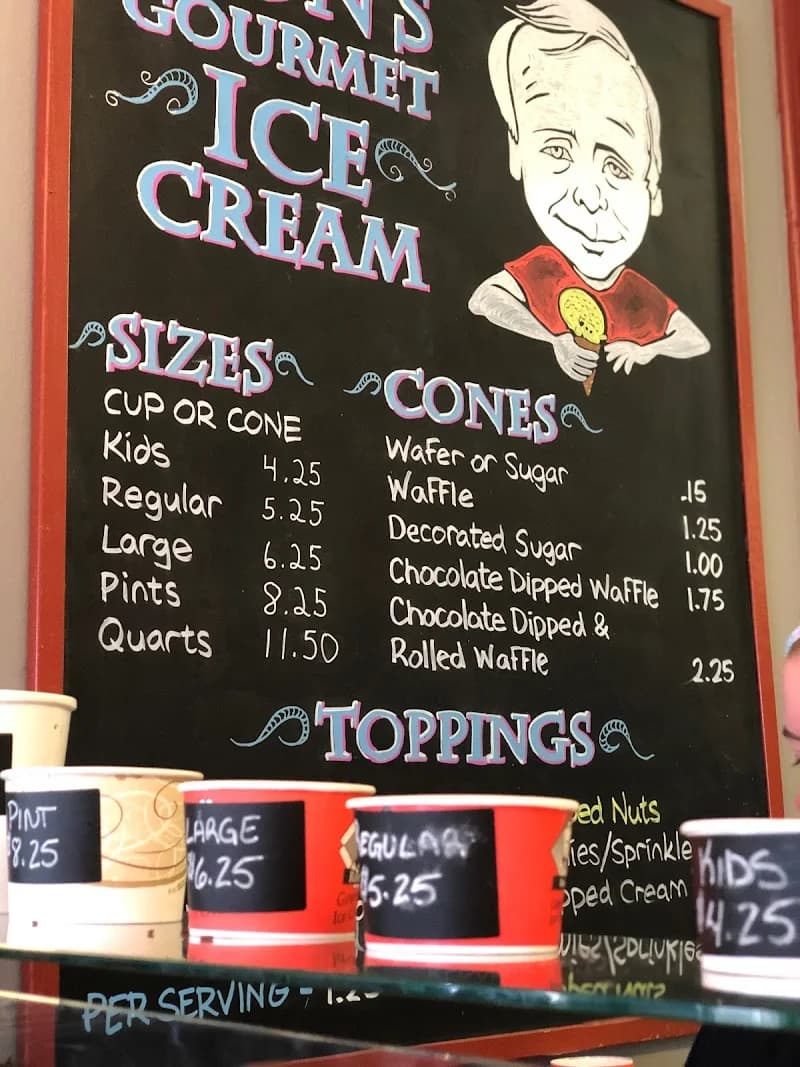 GOURMET
ICE
CREAM
SIZES
CUP OR CONE
Kids 4.25
Regular 5.25
Large 6.25
Pints 8.25
Quarts 11.50
CONES
Wafer or Sugar .15
Waffle 1.25
Decorated Sugar 1.00
Chocolate Dipped Waffle 1.75
Chocolate Dipped &
Rolled Waffle 2.25
TOPPINGS
Nuts
Cream
PER SERVING -
PINT
8.25
LARGE
$6.25
REGULAR
$5.25
KIDS
$4.25